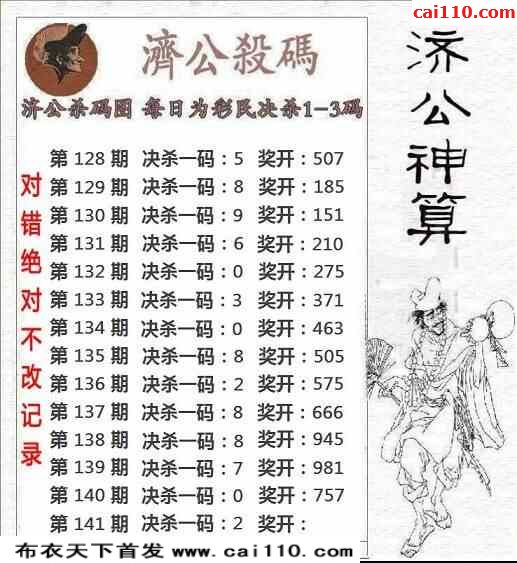 cai110.com
濟公殺碼
济公杀码图 每日为彩民决杀1-3码
济公神算
对错绝对不改记录
第 128 期 决杀一码：5 奖开：507
第 129 期 决杀一码：8 奖开：185
第 130 期 决杀一码：9 奖开：151
第 131 期 决杀一码：6 奖开：210
第 132 期 决杀一码：0 奖开：275
第 133 期 决杀一码：3 奖开：371
第 134 期 决杀一码：0 奖开：463
第 135 期 决杀一码：8 奖开：505
第 136 期 决杀一码：2 奖开：575
第 137 期 决杀一码：8 奖开：666
第 138 期 决杀一码：8 奖开：945
第 139 期 决杀一码：7 奖开：981
第 140 期 决杀一码：0 奖开：757
第 141 期 决杀一码：2 奖开：
布衣天下首发 www.cai110.com